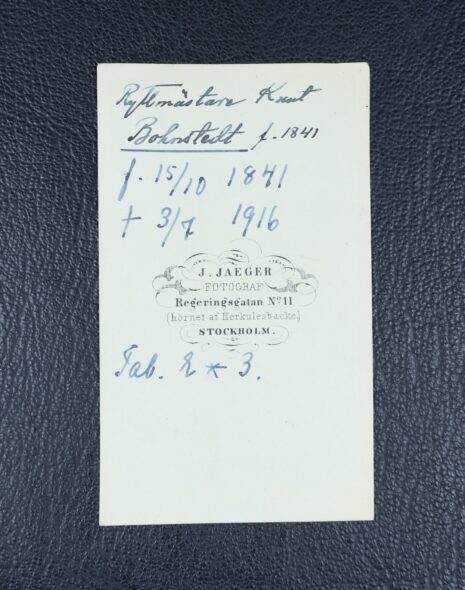 Ryttmästare Knut
Bohnstedt f. 1841
f. 15/10 1841
† 3/7 1916
J. JAEGER
FOTOGRAF
Regeringsgatan Nº 11
(hörnet af Herkulesbacke.)
STOCKHOLM.
Tab. 2 * 3.